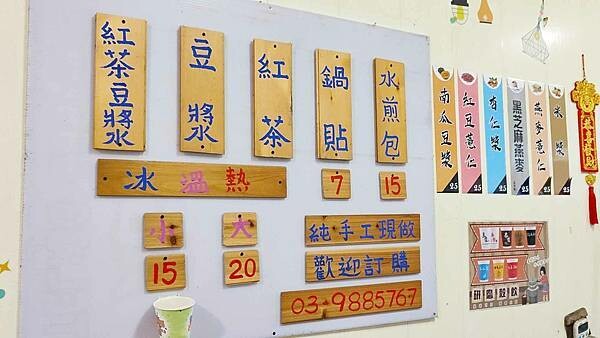 紅茶豆漿
豆漿
紅茶
鍋貼
水煎包
冰溫熱
7
15
小
大
15
20
純手工現做
歡迎訂購
03-9885767
南瓜豆漿
25
紅豆薏仁
25
杏仁漿
25
黑芝麻燕麥
25
燕麥薏仁
25
米漿
25
研磨穀飲